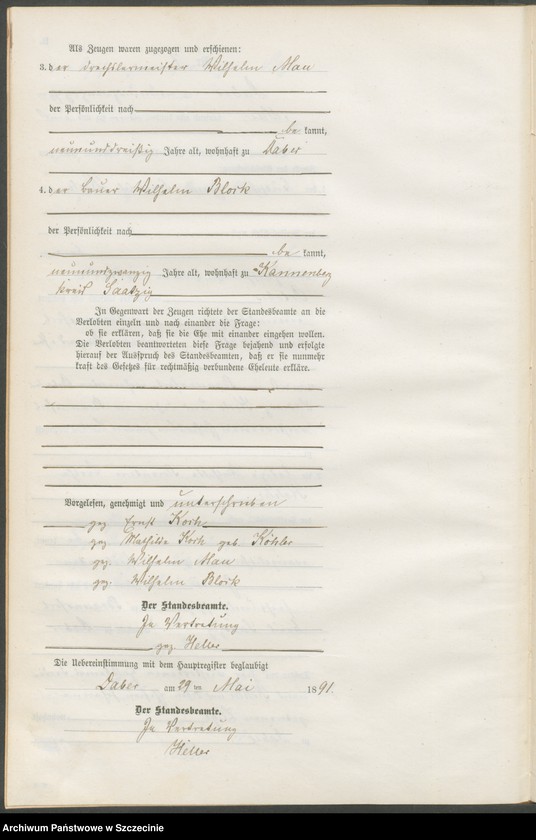 Als Zeugen waren zugezogen und erschienen:
3. der Drechslermeister Wilhelm Mau
der Persönlichkeit nach
be kannt,
neununddreißig Jahre alt, wohnhaft zu Daber
4. der Bauer Wilhelm Block
der Persönlichkeit nach
be kannt,
neunundzwanzig Jahre alt, wohnhaft zu Kannenberg
Kreis Saatzig
In Gegenwart der Zeugen richtete der Standesbeamte an die
Verlobten einzeln und nach einander die Frage:
ob sie erklären, daß sie die Ehe mit einander eingehen wollen.
Die Verlobten beantworteten diese Frage bejahend und erfolgte
hierauf der Ausspruch des Standesbeamten, daß er sie nunmehr
kraft des Gesetzes für rechtmäßig verbundene Eheleute erkläre.
Vorgelesen, genehmigt und unterschrieben
gez. Ernst Koch
gez. Mathilde Koch geb. Köhler
gez. Wilhelm Mau
gez. Wilhelm Block
Der Standesbeamte.
In Vertretung
gez. Heller
Die Uebereinstimmung mit dem Hauptregister beglaubigt
Daber am 29 ten Mai 1891.
Der Standesbeamte.
In Vertretung
Heller
Archiwum Państwowe w Szczecinie